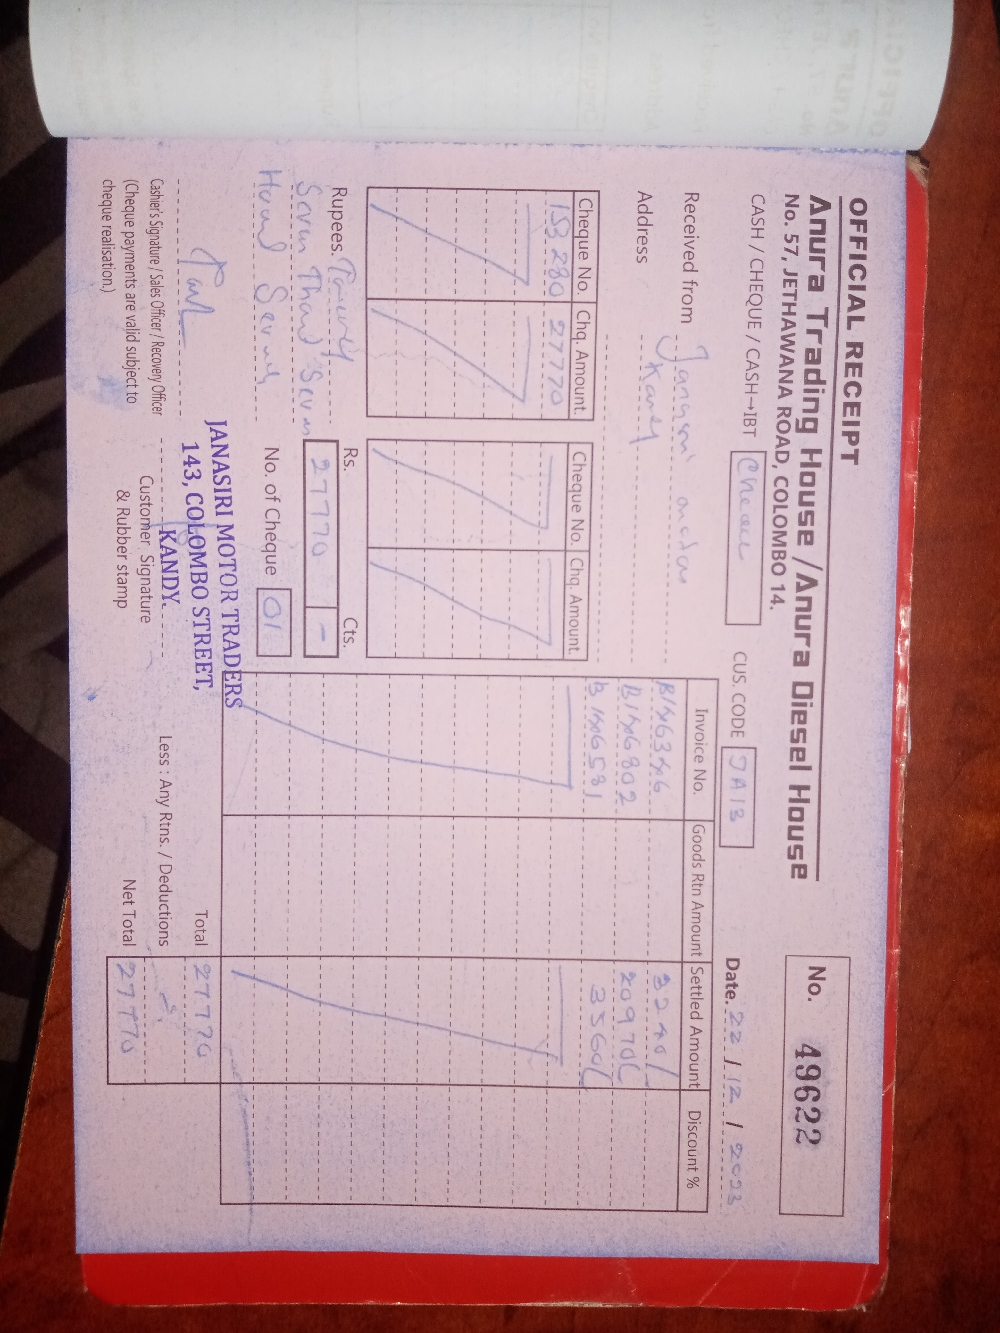 OFFICIAL RECEIPT
Anura Trading House / Anura Diesel House
No. 57, JETHAWANA ROAD, COLOMBO 14.
No. 49622
CASH / CHEQUE / CASH→IBT Cheque
CUS. CODE JA13
Date. 22 / 12 / 2023
Received from
Address Kandy
Cheque No. Chq. Amount Cheque No. Chq. Amount
153280 27770
Invoice No. Goods Rtn Amount Settled Amount Discount %
3240/
20970/
3560/
Rupees. Seven Seven
Rs. Cts.
27770 -
No. of Cheque 01
JANASIRI MOTOR TRADERS
143, COLOMBO STREET,
KANDY.
Total 27770
Less : Any Rtns. / Deductions
Net Total 27770
Cashier's Signature / Sales Officer / Recovery Officer
(Cheque payments are valid subject to
cheque realisation.)
Customer Signature
& Rubber stamp